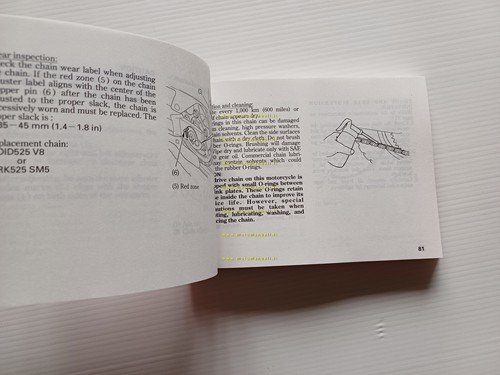 ear inspection:
eck the chain wear label when adjusting
e chain. If the red zone (5) on the chain
uster label aligns with the center of the
pper pin (6) after the chain has been
usted to the proper slack, the chain is
cessively worn and must be replaced. The
oper slack is :
35—45 mm (1.4—1.8 in)
placement chain:
DID525 V8
or
RK525 SM5
(6)
(5) Red zone
tion and cleaning:
e every 1,000 km (600 miles) or
f chain appears dry.
rings in this chain can be damaged
m cleaning, high pressure washers,
ain solvents. Clean the side surfaces
chain with a dry cloth. Do not brush
ber O-rings. Brushing will damage
Wipe dry and lubricate only with SAE
0 gear oil. Commercial chain lubri-
may contain solvents which could
the rubber O-rings.
ON
drive chain on this motorcycle is
pped with small O-rings between
ink plates. These O-rings retain
se inside the chain to improve its
ice life. However, special
autions must be taken when
ting, lubricating, washing, and
cing the chain.
81